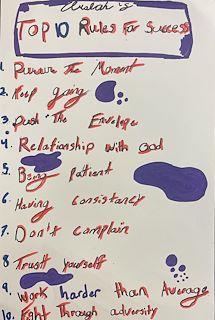 Arslah's
Top 10 Rules For Success
1. Pursure The Moment
2. Keep going
3. Push The Envelope
4. Relationship with God
5. Being Patient
6. Having Consistancy
7. Don't Complain
8 Trust yourself
9 Work harder than Average
10. Fight Through adversity